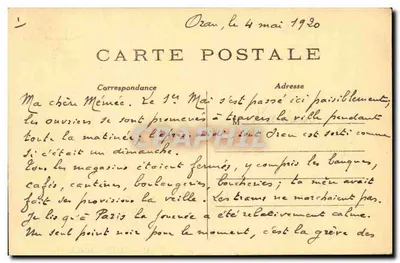 Oran, le 4 mai 1920
CARTE POSTALE
Correspondance Adresse
Ma chère Mémée. Le 1er Mai s'est passé ici paisiblement,
les ouvriers se sont promenés à travers la ville pendant
toute la matinée; l'après midi tout Oran est sorti comme
si c'était un dimanche.
Tous les magasins étaient fermés, y compris les banques,
cafés, cantines, boulangeries, boucheries; ta mère avait
fait ses provisions la veille. Les trams ne marchaient pas.
Je lis qu'à Paris la journée a été relativement calme.
Un seul point noir pour le moment, c'est la grève des